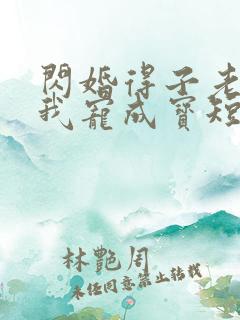 閃婚得子老
我寵成寶短
林艷周
未经同意禁止转载